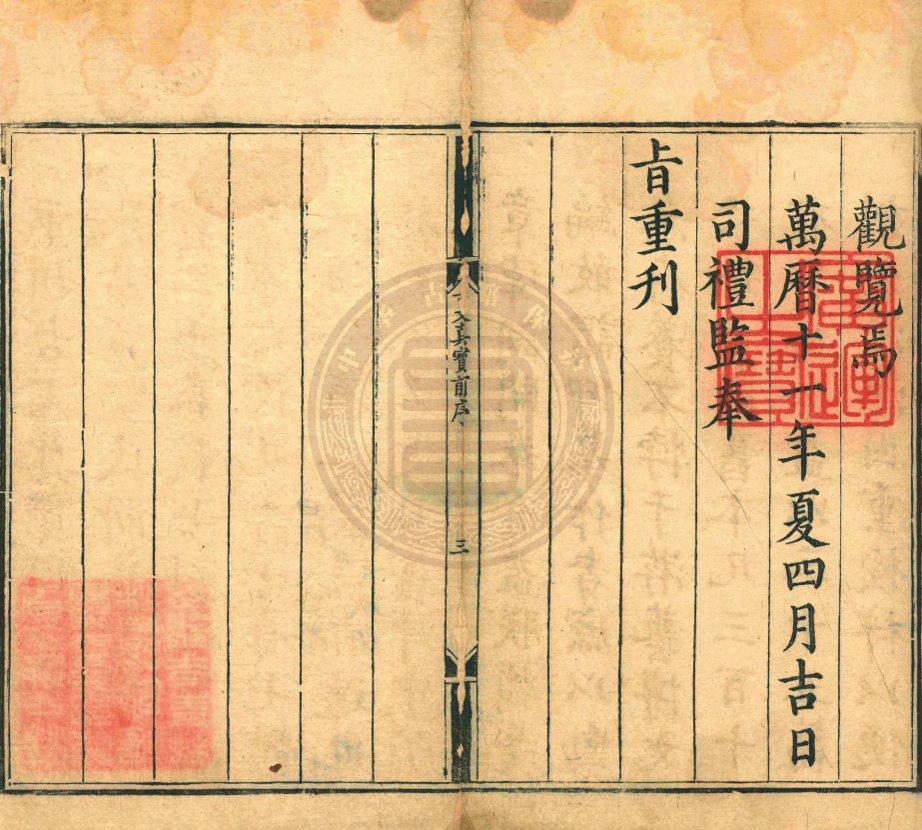 觀覽焉
萬曆十一年夏四月吉日
司禮監奉
旨重刊
真寳前序
三